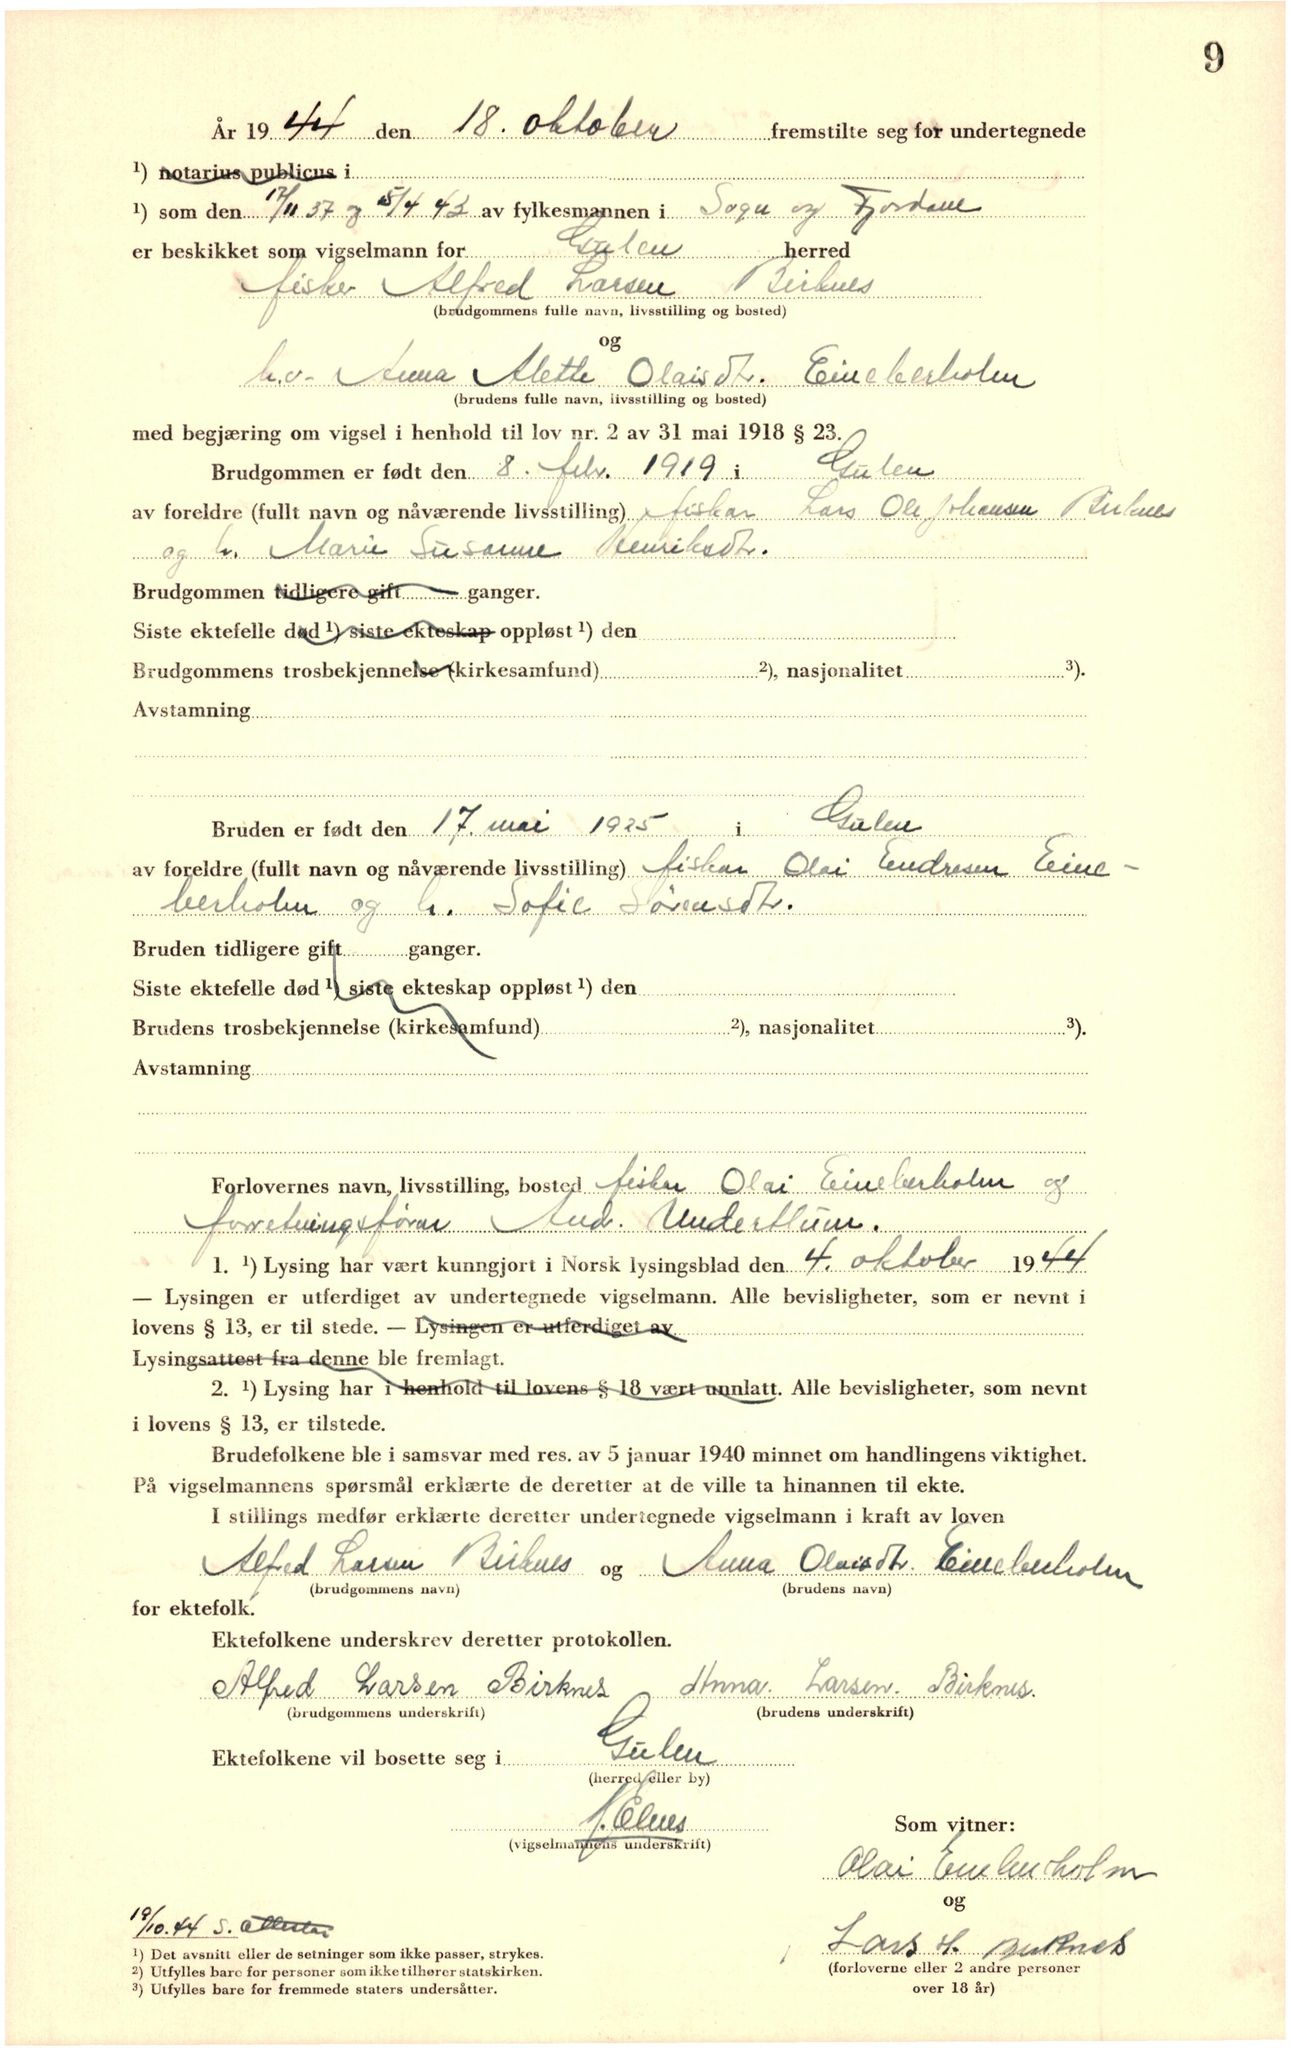 9
År 1944 den 18. oktober fremstilte seg for undertegnede
¹) notarius publicus i
¹) som den 17/11 37 og 15/4 43 av fylkesmannen i Sogn og Fjordane
er beskikket som vigselmann for Gulen herred
fisker Alfred Larsen Birknes
(brudgommens fulle navn, livsstilling og bosted)
og
h.v. Anna Alette Olaisdtr. Eineberholm
(brudens fulle navn, livsstilling og bosted)
med begjæring om vigsel i henhold til lov nr. 2 av 31 mai 1918 § 23.
Brudgommen er født den 8. febr. 1919 i Gulen
av foreldre (fullt navn og nåværende livsstilling) fiskar Lars Ole Johansen Birknes
og h. Marie Susanne Henriksdtr.
Brudgommen tidligere gift ganger.
Siste ektefelle død ¹) siste ekteskap oppløst ¹) den
Brudgommens trosbekjennelse (kirkesamfund) ²), nasjonalitet ³).
Avstamning
Bruden er født den 17. mai 1925 i Gulen
av foreldre (fullt navn og nåværende livsstilling) fiskar Olai Endresen Eine-
berholm og h. Sofie Sørensdtr.
Bruden tidligere gift ganger.
Siste ektefelle død ¹) siste ekteskap oppløst ¹) den
Brudens trosbekjennelse (kirkesamfund) ²), nasjonalitet ³).
Avstamning
Forlovernes navn, livsstilling, bosted fisker Olai Eineberholm og
forretningsförar And. Undertun.
1. ¹) Lysing har vært kunngjort i Norsk lysingsblad den 4. oktober 1944
— Lysingen er utferdiget av undertegnede vigselmann. Alle bevisligheter, som er nevnt i
lovens § 13, er til stede. — Lysingen er utferdiget av
Lysingsattest fra denne ble fremlagt.
2. ¹) Lysing har i henhold til lovens § 18 vært unnlatt. Alle bevisligheter, som nevnt
i lovens § 13, er tilstede.
Brudefolkene ble i samsvar med res. av 5 januar 1940 minnet om handlingens viktighet.
På vigselmannens spørsmål erklærte de deretter at de ville ta hinannen til ekte.
I stillings medfør erklærte deretter undertegnede vigselmann i kraft av loven
Alfred Larsen Birknes og Anna Olaisdtr. Eineberholm
(brudgommens navn) (brudens navn)
for ektefolk.
Ektefolkene underskrev deretter protokollen.
Alfred Larsen Birknes Anna. Larsen. Birknes.
(brudgommens underskrift) (brudens underskrift)
Ektefolkene vil bosette seg i Gulen
(herred eller by)
Elnes
(vigselmannens underskrift)
Som vitner:
Olai Eineberholm
og
Lars H. Birknes
(forloverne eller 2 andre personer
over 18 år)
19/10.44 S.
¹) Det avsnitt eller de setninger som ikke passer, strykes.
²) Utfylles bare for personer som ikke tilhører statskirken.
³) Utfylles bare for fremmede staters undersåtter.